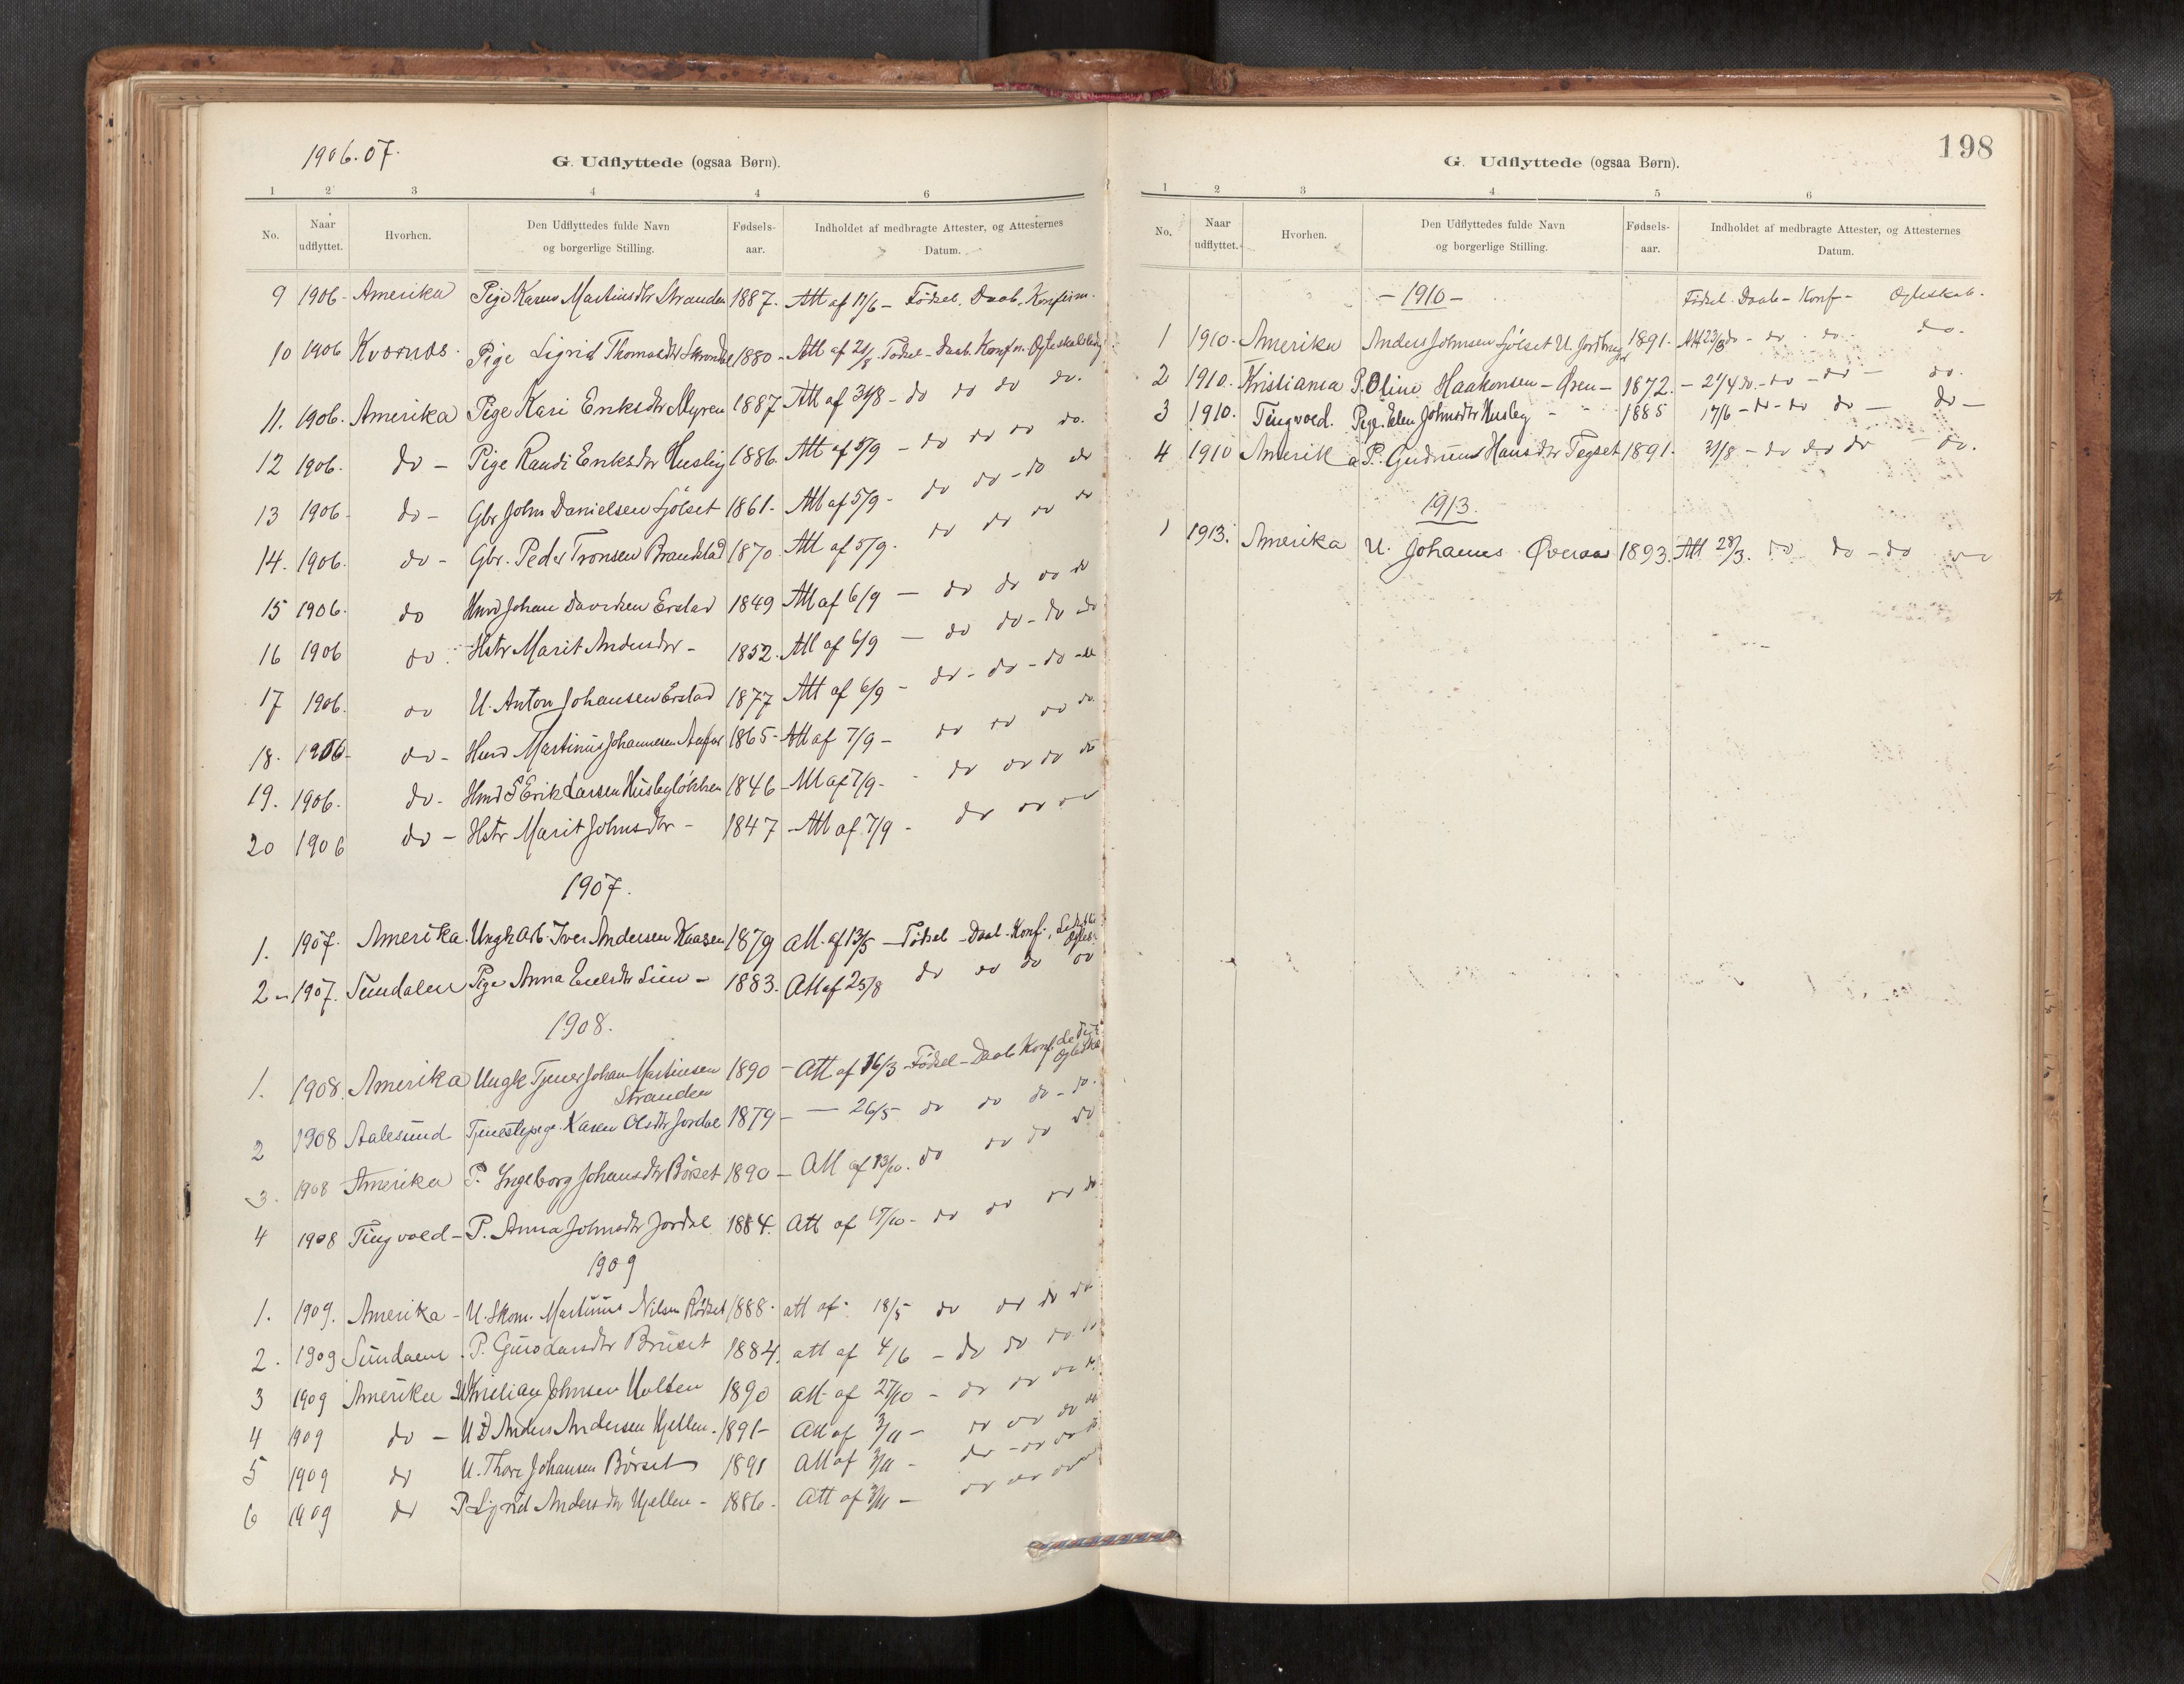 1906.07.
G. Udflyttede (ogsaa Børn).
1 2 3 4 4 6
No. Naar udflyttet. Hvorhen. Den Udflyttedes fulde Navn og borgerlige Stilling. Fødsels-aar. Indholdet af medbragte Attester, og Attesternes Datum.
9 1906 - Amerika Pige Karen Martinsdtr Stranden 1887. Att af 12/6 - Fødsel. Daab. Konfirm.
10 1906 Kvornes. Pige Sigrid Thomasdtr 1880 - Att af Fødsel - Daab. Konfn.
11. 1906. Amerika Pige Kari Eriksdtr Myren 1887 Att af 31/8 - do do do do.
12 1906. do - Pige Randi Eriksdtr Husby 1886. Att af 5/9 - do do do do.
13 1906 - do - Gbr John Danielsen Sjölset 1861 - Att af 5/9 - do do - do do
14. 1906. do - Gbr. Peder Tronsen Brandstad 1870. Att af 5/9. do do do do
15 1906. do Hmd Johan Davidsen Erstad 1849 Att af 6/9 - do do do do
16 1906 do. Hstr Marit Andersdtr - 1852. Att af 6/9 - do do - do do
17 1906. do U. Anton Johansen Erstad 1877 Att af 6/9 - do - do - do - do
18. 1906 - do - Hmd Martinus Johannesen 1865 - Att af 7/9 - do do do do.
19. 1906. do - Hmd Erik Larsen Husbyløkken 1846 - Att af 7/9 - do do do do
20 1906 do - Hstr Marit Johnsdtr - 1847 - Att af 7/9 - do do do
1907.
1. 1907. Amerika. Ungk Arb. Iver Andersen Kaasen 1879 Att. af 13/5 - Fødsel - Daab - Konf.,
2 - 1907. Sundalen Pige Anna 1883. Att af 25/8 do do do do
1908.
1. 1908. Amerika Ungk Tjener Johan Martinsen Stranden 1890 - Att af 16/3 - Fødsel - Daab Konf.
2 1908 Aalesund Tjenestepige. Karen Olsdtr Jordal 1879 - - 26/5 do do do - do.
3. 1908 Amerika P. Ingeborg Johansdtr Börset 1890 - Att af 13/10. do do do do
4 1908 Tingvold - P. Anna Johnsdtr Jordal 1884. Att af 17/10 - do do do do
1909
1. 1909. Amerika - U. Skom. Martinus Nilsen Rödset 1888. att af. 18/5 do do do do
2. 1909 Sundalen. P. Guro Larsdtr Bruset 1884. att af 4/6 - do do do do
3 1909 Amerika U Kristian Johnsen Holten 1890 att af 27/10 - do do do do
4 1909 do - U Anders Andersen Hjellen. 1891 - Att af 3/11 - do do do do
5 1909 do U. Thore Johansen Börset 1891 Att af 3/11 - do - do do do
6 1909 do P Sigrid Andersdtr Hjellen - 1886 - Att af 3/11 - do do do
198
G. Udflyttede (ogsaa Børn).
1 2 3 4 5 6
No. Naar udflyttet. Hvorhen. Den Udflyttedes fulde Navn og borgerlige Stilling. Fødsels-aar. Indholdet af medbragte Attester, og Attesternes Datum.
- 1910 - Fødsel. Daab - Konf -
1 1910. Amerika Anders Johnsen Sjölset U. 1891. Att 23/3 do - do - do - do.
2 1910. Kristiania P. Oline Haakonsen - Øren - 1872. - 21/4 do. - do - do - do.
3 1910. Tingvold. Pige. Elen Johnsdtr Husby - " 1885 17/6 - do - do do - do -
4 1910 Amerika P. Gudrun Hansdtr Tegset 1891. 31/8 - do do do do.
1913.
1 1913. Amerika U. Johannes Øveraa 1893. Att 28/3. do do - do do